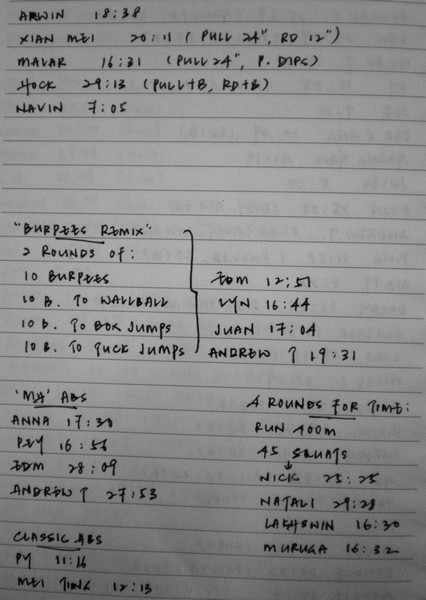 ARWIN 18:38
XIAN MEI 20:11 (PULL 24", RD 12")
MALAR 16:31 (PULL 24", P. DIPS)
HOCK 29:13 (PULL+B, RD+B)
NAVIN 7:05
"BURPEES REMIX"
2 ROUNDS OF:
10 BURPEES
10 B. TO WALLBALL
10 B. TO BOX JUMPS
10 B. TO TUCK JUMPS
EDM 12:57
LYN 16:44
JUAN 17:04
ANDREW T 19:31
'MA' ABS
ANNA 17:30
PEY 16:56
EDM 28:09
ANDREW T 27:53
CLASSIC ABS
PY 11:16
MEI TING 12:13
4 ROUNDS FOR TIME:
RUN 400M
45 SQUATS
NICK 25:25
NATALI 29:28
LAKHSWIN 16:30
MURUGA 16:32